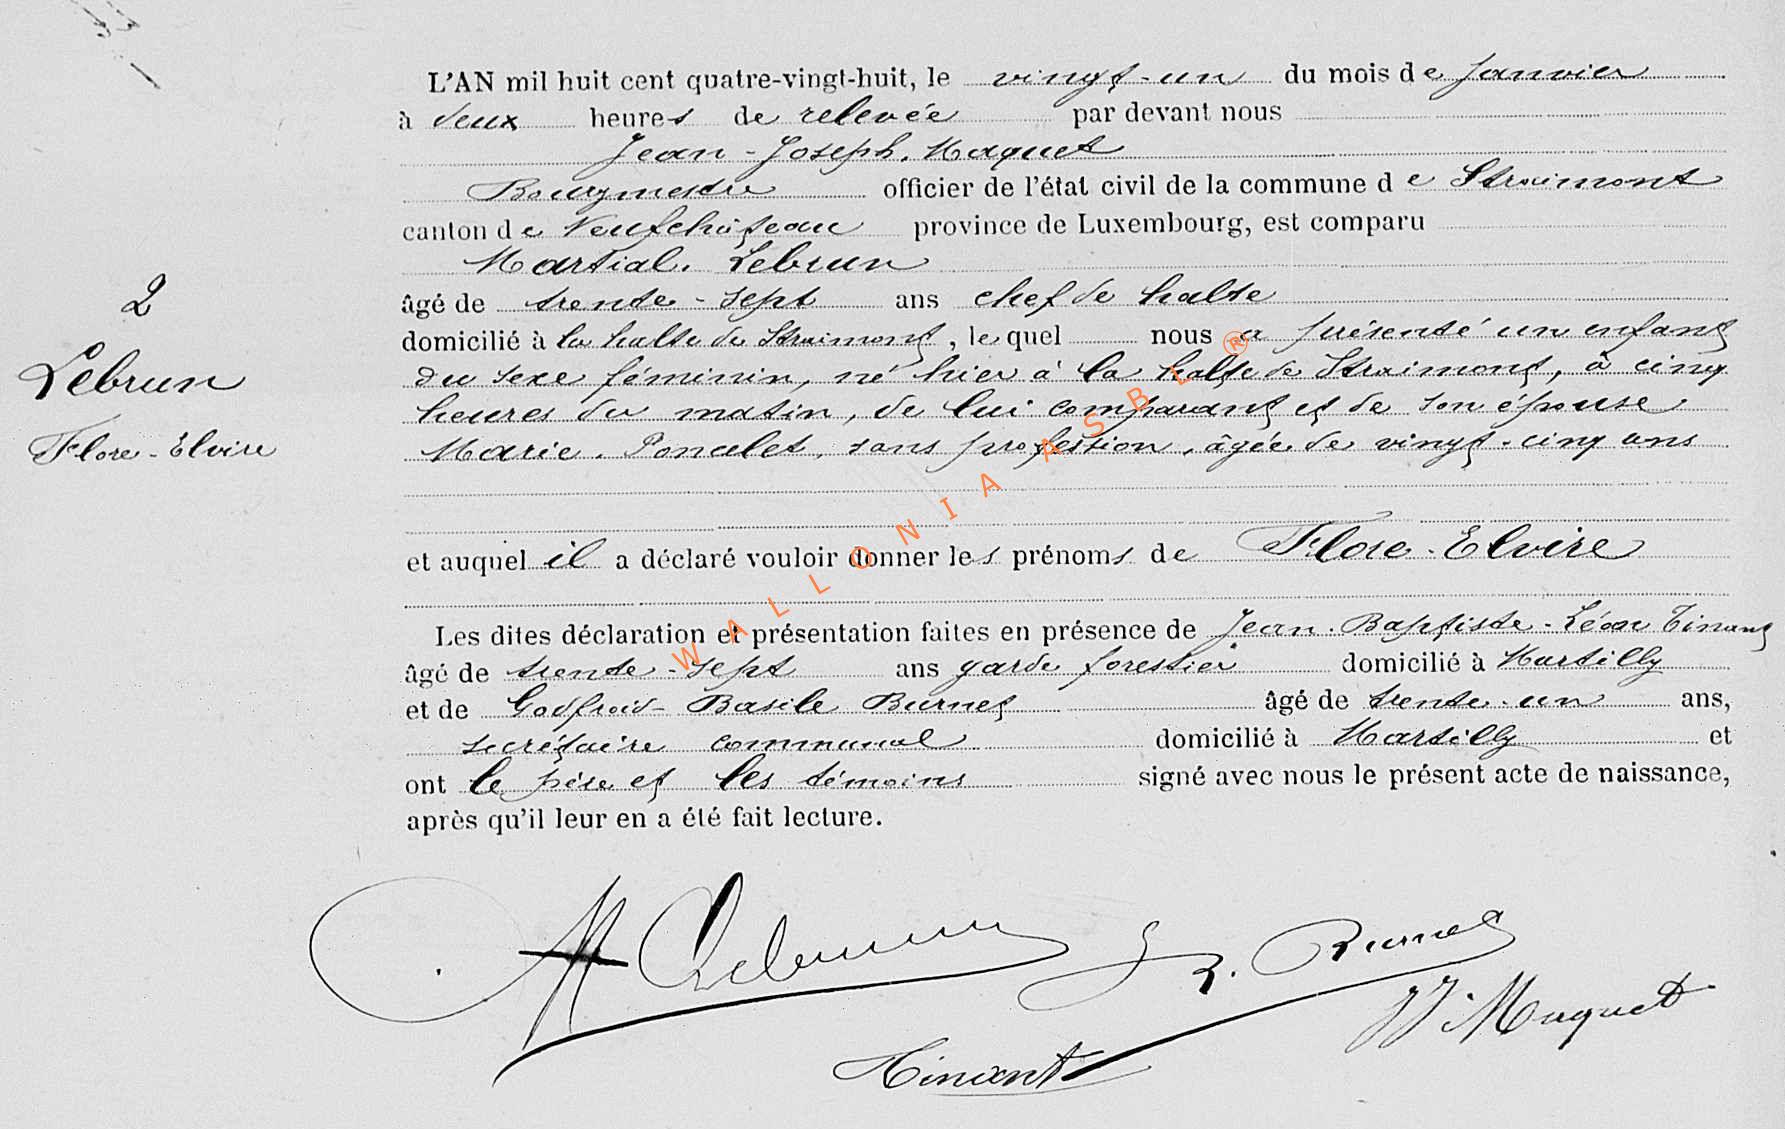 L'AN mil huit cent quatre-vingt-huit, le vingt-un du mois de Janvier
à deux heures de relevée par devant nous
Jean-Joseph. Maquet
Bourgmestre officier de l'état civil de la commune de Straimont
canton de Neufchâteau province de Luxembourg, est comparu
Martial. Lebrun
âgé de trente-sept ans chef de halte
domicilié à la halte de Straimont, le quel nous a présenté un enfant
du sexe féminin, né hier à la halte de Straimont, à cinq
heures du matin, de lui comparant et de son épouse
Marie. Poncelet, sans profession, âgée de vingt-cinq ans
et auquel il a déclaré vouloir donner les prénoms de Flore-Elvire
Les dites déclaration et présentation faites en présence de Jean-Baptiste-Léon Tinant
âgé de trente-sept ans garde forestier domicilié à Martilly
et de Godfroid-Basile Burnet âgé de trente-un ans,
secrétaire communal domicilié à Martilly et
ont le père et les témoins signé avec nous le présent acte de naissance,
après qu'il leur en a été fait lecture.
2
Lebrun
Flore-Elvire
M Lebrun
Burnet
JJ Maquet
Tinant
WALLONIA ASBL ®